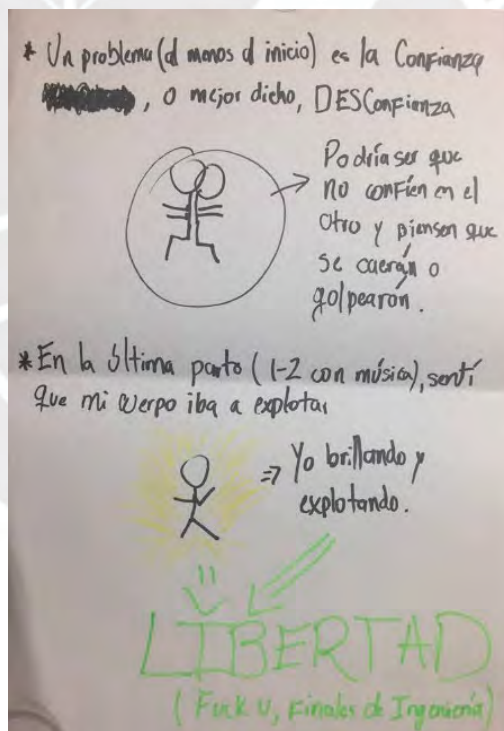 * Un problema (al menos al inicio) es la Confianza
, o mejor dicho, DESConfianza
Podría ser que
no confíen en el
otro y piensen que
se caerán o
golpearán.
* En la última parte (1-2 con música), sentí
que mi cuerpo iba a explotar
=> Yo brillando y
explotando.
LIBERTAD
(Fuck U, Finales de Ingeniería)